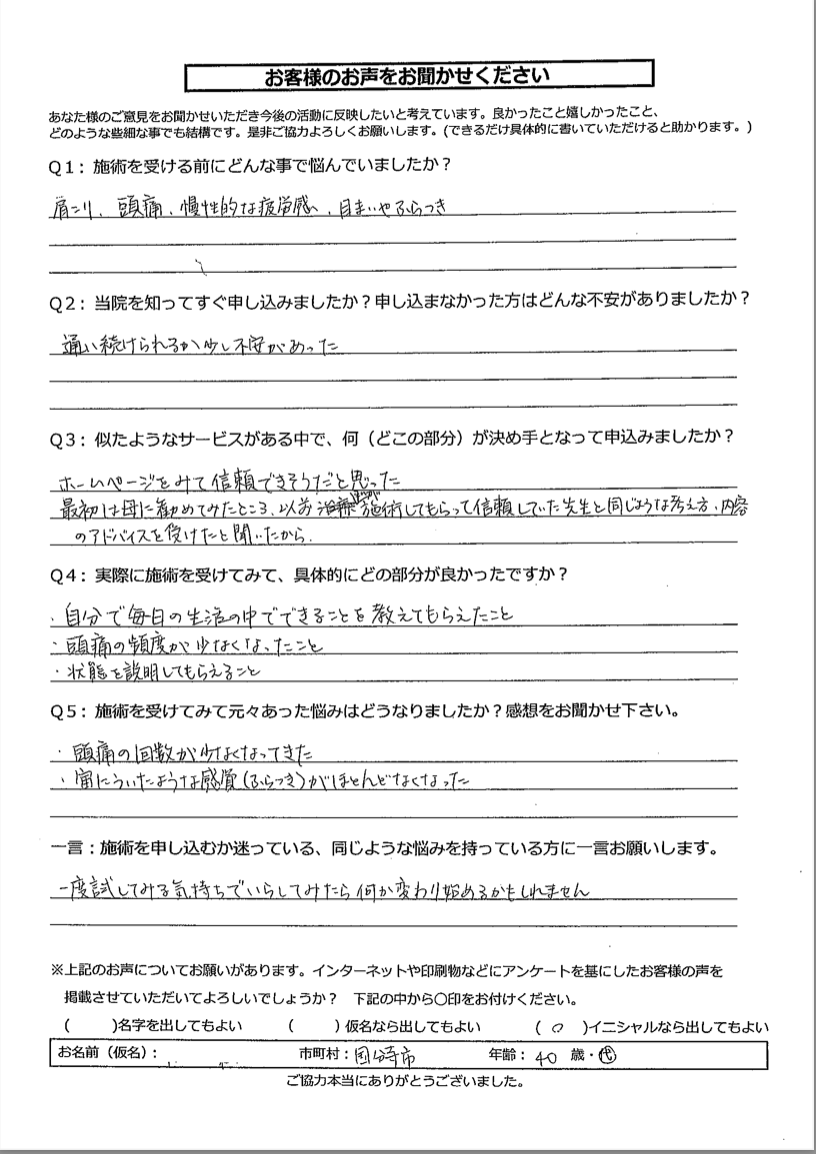 お客様のお声をお聞かせください
あなた様のご意見をお聞かせいただき今後の活動に反映したいと考えています。良かったこと嬉しかったこと、
どのような些細な事でも結構です。是非ご協力よろしくお願いします。(できるだけ具体的に書いていただけると助かります。)
Q1：施術を受ける前にどんな事で悩んでいましたか？
肩こり、頭痛、慢性的な疲労感、目まいやふらつき
Q2：当院を知ってすぐ申し込みましたか？申し込まなかった方はどんな不安がありましたか？
通い続けられるか少し不安があった
Q3：似たようなサービスがある中で、何（どこの部分）が決め手となって申込みましたか？
ホームページをみて信頼できそうだと思った
最初は母に勧めてみたところ、以前 施術してもらって信頼していた先生と同じような考え方、内容
のアドバイスを受けたと聞いたから。
Q4：実際に施術を受けてみて、具体的にどの部分が良かったですか？
・自分で毎日の生活の中でできることを教えてもらえたこと
・頭痛の頻度が少なくなったこと
・状態を説明してもらえること
Q5：施術を受けてみて元々あった悩みはどうなりましたか？感想をお聞かせ下さい。
・頭痛の回数が少なくなってきた
・宙にういたような感覚(ふらつき)がほとんどなくなった
一言：施術を申し込むか迷っている、同じような悩みを持っている方に一言お願いします。
一度試してみる気持ちでいらしてみたら何か変わり始めるかもしれません
※上記のお声についてお願いがあります。インターネットや印刷物などにアンケートを基にしたお客様の声を
掲載させていただいてよろしいでしょうか？ 下記の中から〇印をお付けください。
( )名字を出してもよい ( )仮名なら出してもよい ( ○ )イニシャルなら出してもよい
お名前（仮名）： 市町村：国分寺市 年齢：40 歳・代
ご協力本当にありがとうございました。